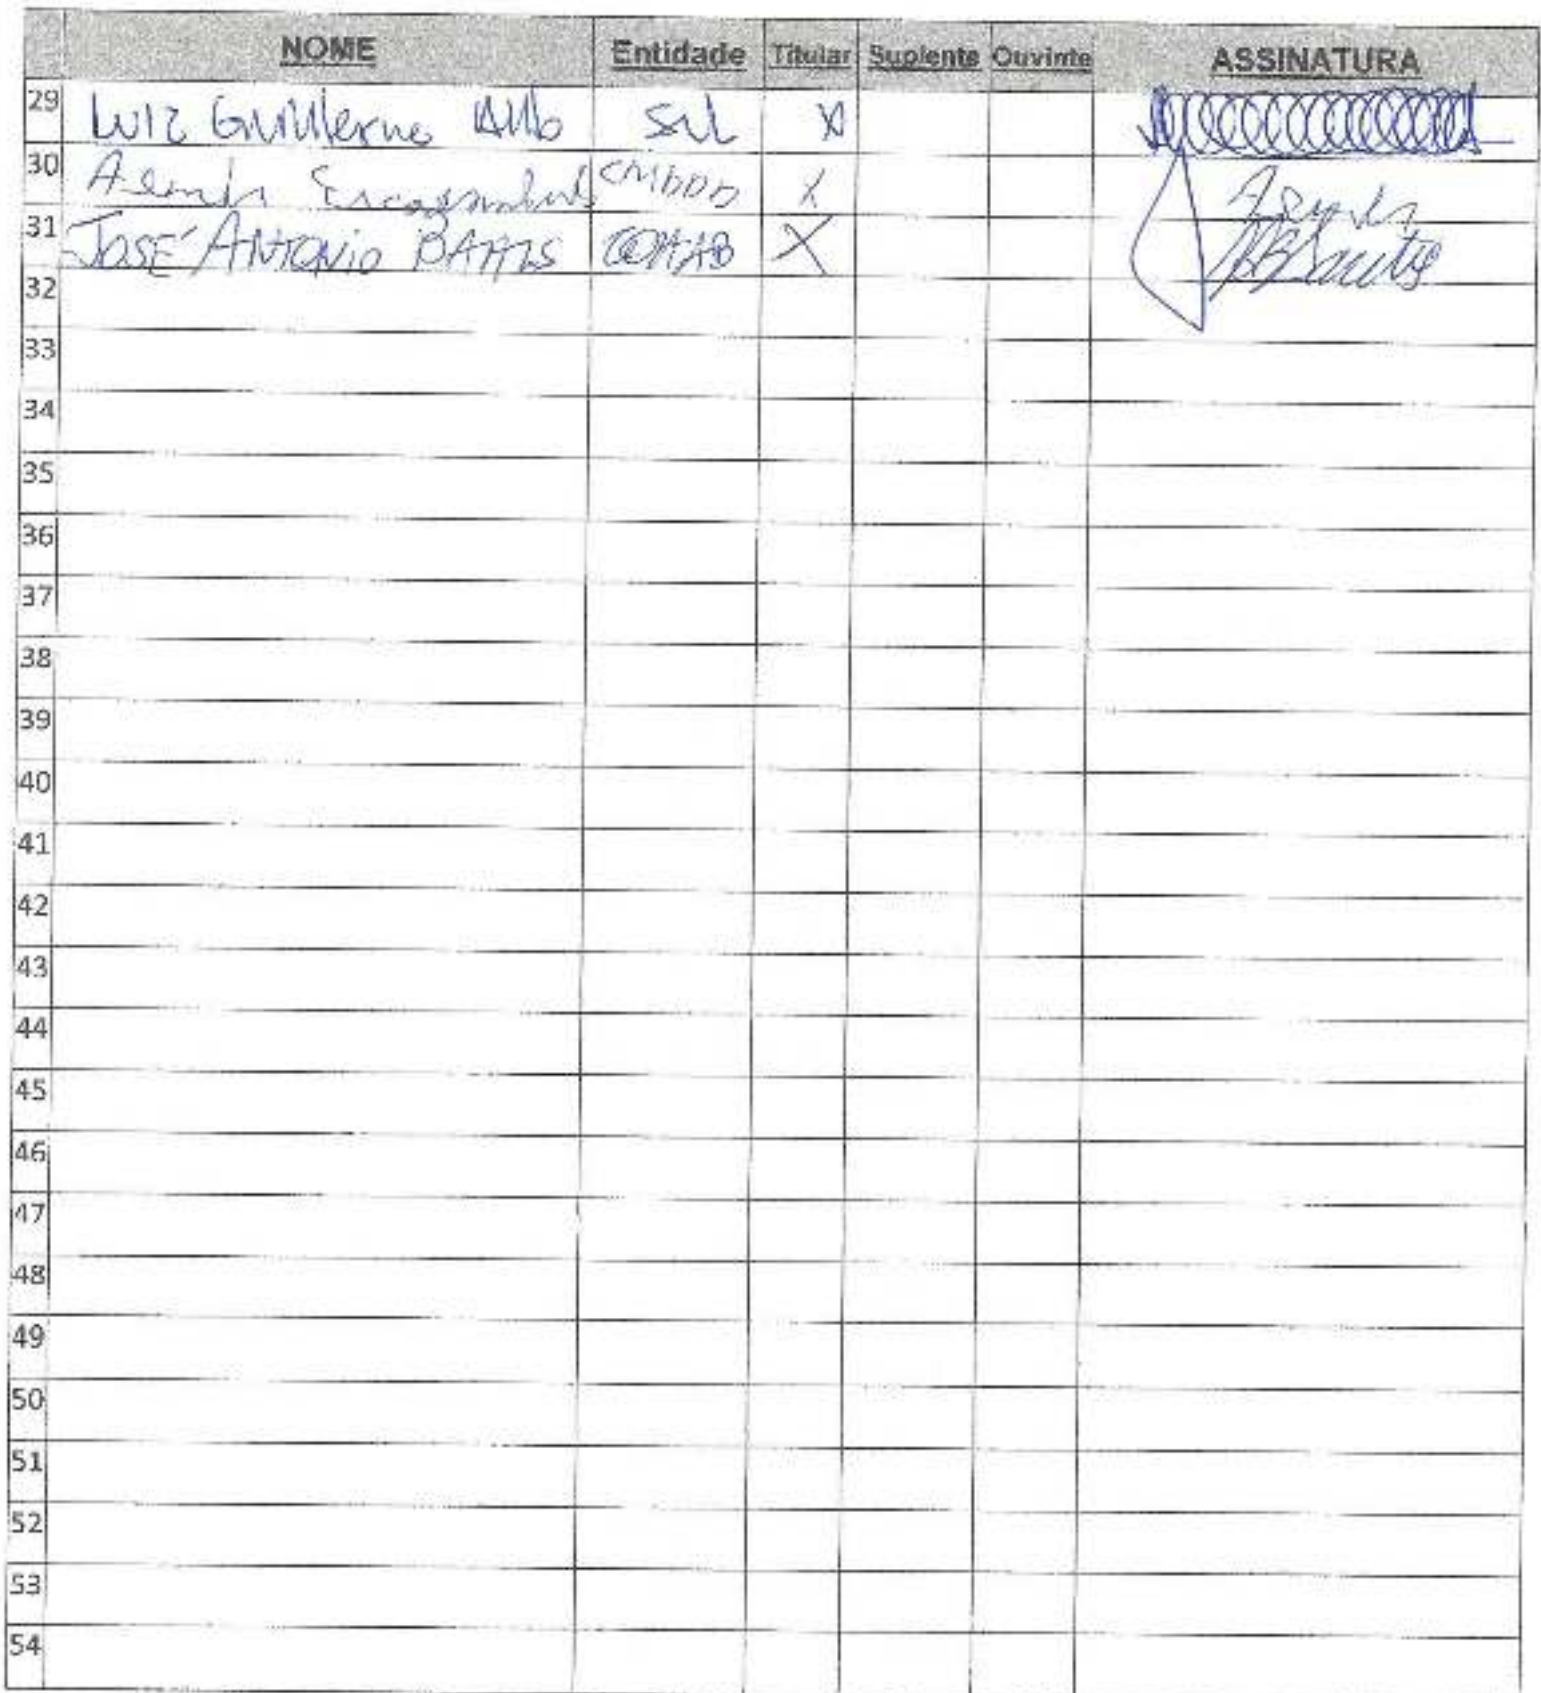 NOME Entidade Titular Suplente Ouvinte ASSINATURA
29 Luiz Guilherme Sul X
30 X
31 JOSÉ ANTONIO COHAB X
32
33
34
35
36
37
38
39
40
41
42
43
44
45
46
47
48
49
50
51
52
53
54